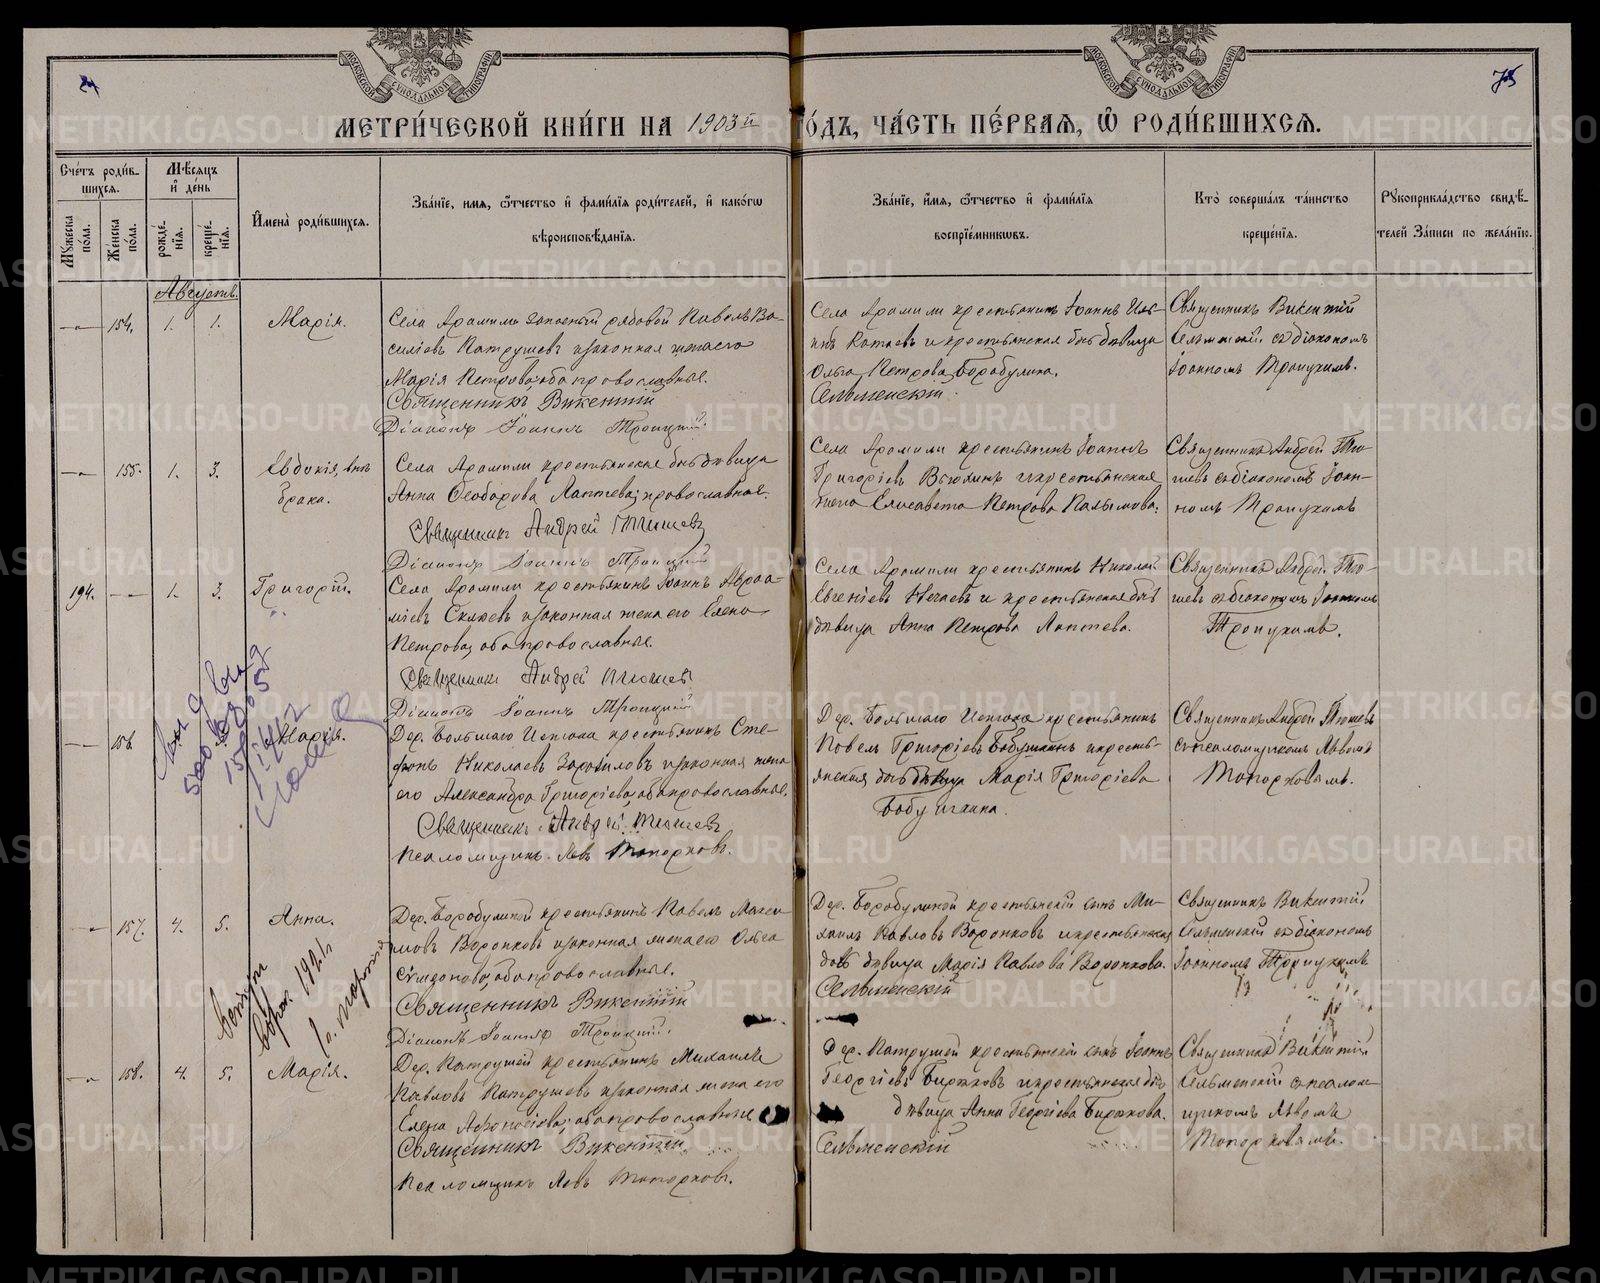 75
МОСКОВСКОЙ СѴНОДАЛЬНОЙ ТИПОГРАФІИ
МОСКОВСКОЙ СѴНОДАЛЬНОЙ ТИПОГРАФІИ
МЕТРИ́ЧЕСКОЙ КНИ́ГИ НА 1903й ГО́ДЪ, ЧА́СТЬ ПЕ́РВАЯ, Ѡ РОДИ́ВШИХСЯ.
Сче́тъ роди́в-
шихся.
Му́жеска по́ла.
Же́нска по́ла.
Мѣ́сяцъ
и де́нь
рожде́-
нія.
креще́-
нія.
И́мена роди́вшихся.
Зва́нїе, имя, ѿчество и фами́лїя роди́телей, и како́гѡ
вѣроисповѣ́данїя.
Зва́нїе, и́мя, ѿчество и фами́лїя
воспрїе́мниковъ.
Кто̀ соверша́лъ та́инство
креще́нїя.
Рꙋкоприкла́дство свидѣ́-
телей За́писи по жела́нїю.
Августъ.
154. 1. 1. Марія.
Села Арамили запасный рядовой Павелъ Ва-
силіевъ Патрушевъ и законная жена его
Марія Петрова; оба православные.
Священникъ Викентій
Діаконъ Іоаннъ Троицкій.
Села Арамили крестьянинъ Іоаннъ Иль-
инъ Катаевъ и крестьянская дѣвица
Ольга Петрова Бородулина.
Сельменскій.
Священникъ Викентій
Сельменскій съ діакономъ
Іоанномъ Троицкимъ.
155. 1. 3. Евдокія, внѣ
брака.
Села Арамили крестьянская дѣвица
Анна Ѳеодорова Лаптева; православная.
Священникъ Андрей Тюшевъ
Діаконъ Іоаннъ Троицкій
Села Арамили крестьянинъ Іоаннъ
Григоріевъ и крестьянская
жена Елисавета Петрова
Священникъ Андрей Тю-
шевъ съ діакономъ Іоан-
номъ Троицкимъ
194. 1. 3. Григорій.
Села Арамили крестьянинъ Іоаннъ Авраа-
міевъ и законная жена его Елена
Петрова, оба православные.
Священникъ Андрей Тюшевъ
Діаконъ Іоаннъ Троицкій
Села Арамили крестьянинъ Николай
Евгеніевъ Нечаевъ и крестьянская
дѣвица Анна Петрова Лаптева.
Священникъ Андрей Тю-
шевъ съ діакономъ Іоанномъ
Троицкимъ.
156. Марія.
Дер. Большаго Истока крестьянинъ Сте-
фанъ Николаевъ и законная жена
его Александра Григоріева; оба православные.
Священникъ Андрей Тюшевъ
Псаломщикъ Левъ Топорковъ.
Дер. Большаго Истока крестьянинъ
Павелъ Григоріевъ Бабушкинъ и кресть-
янская дѣвица Марія Григоріева
Бабушкина.
Священникъ Андрей Тюшевъ
съ псаломщикомъ Львомъ
Топорковымъ.
157. 4. 5. Анна.
Дер. Бородулиной крестьянинъ Павелъ Макси-
мовъ Воронковъ и законная жена его Ольга
Симеонова, оба православные.
Священникъ Викентій
Діаконъ Іоаннъ Троицкій.
Дер. Бородулиной крестьянскій сынъ Ми-
хаилъ Павловъ Воронковъ и крестьянская
дочь дѣвица Марія Павлова Воронкова.
Сельменскій
Священникъ Викентій
Сельменскій съ діакономъ
Іоанномъ Троицкимъ
158. 4. 5. Марія.
Дер. Патрушей крестьянинъ Михаилъ
Павловъ Патрушевъ и законная жена его
Елена Аѳанасіева; оба православные
Священникъ Викентій
Псаломщикъ Левъ Топорковъ.
Дер. Патрушей крестьянскій сынъ Іоаннъ
Георгіевъ Бирюковъ и крестьянская
дѣвица Анна Георгіева Бирюкова.
Сельменскій
Священникъ Викентій
Сельменскій съ псалом-
щикомъ Львомъ
Топорковымъ.
METRIKI.GASO-URAL.RU